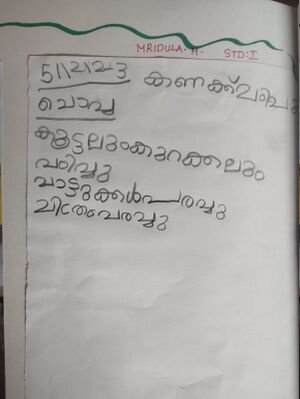 MRIDULA.M. STD:I
5/12/23 കണക്ക്
ചൊവ്വ
കൂട്ടലുംകുറക്കലും
പഠിച്ചു
പാട്ടുക്കൾപരച്ചു
ചിത്രംവരച്ചു